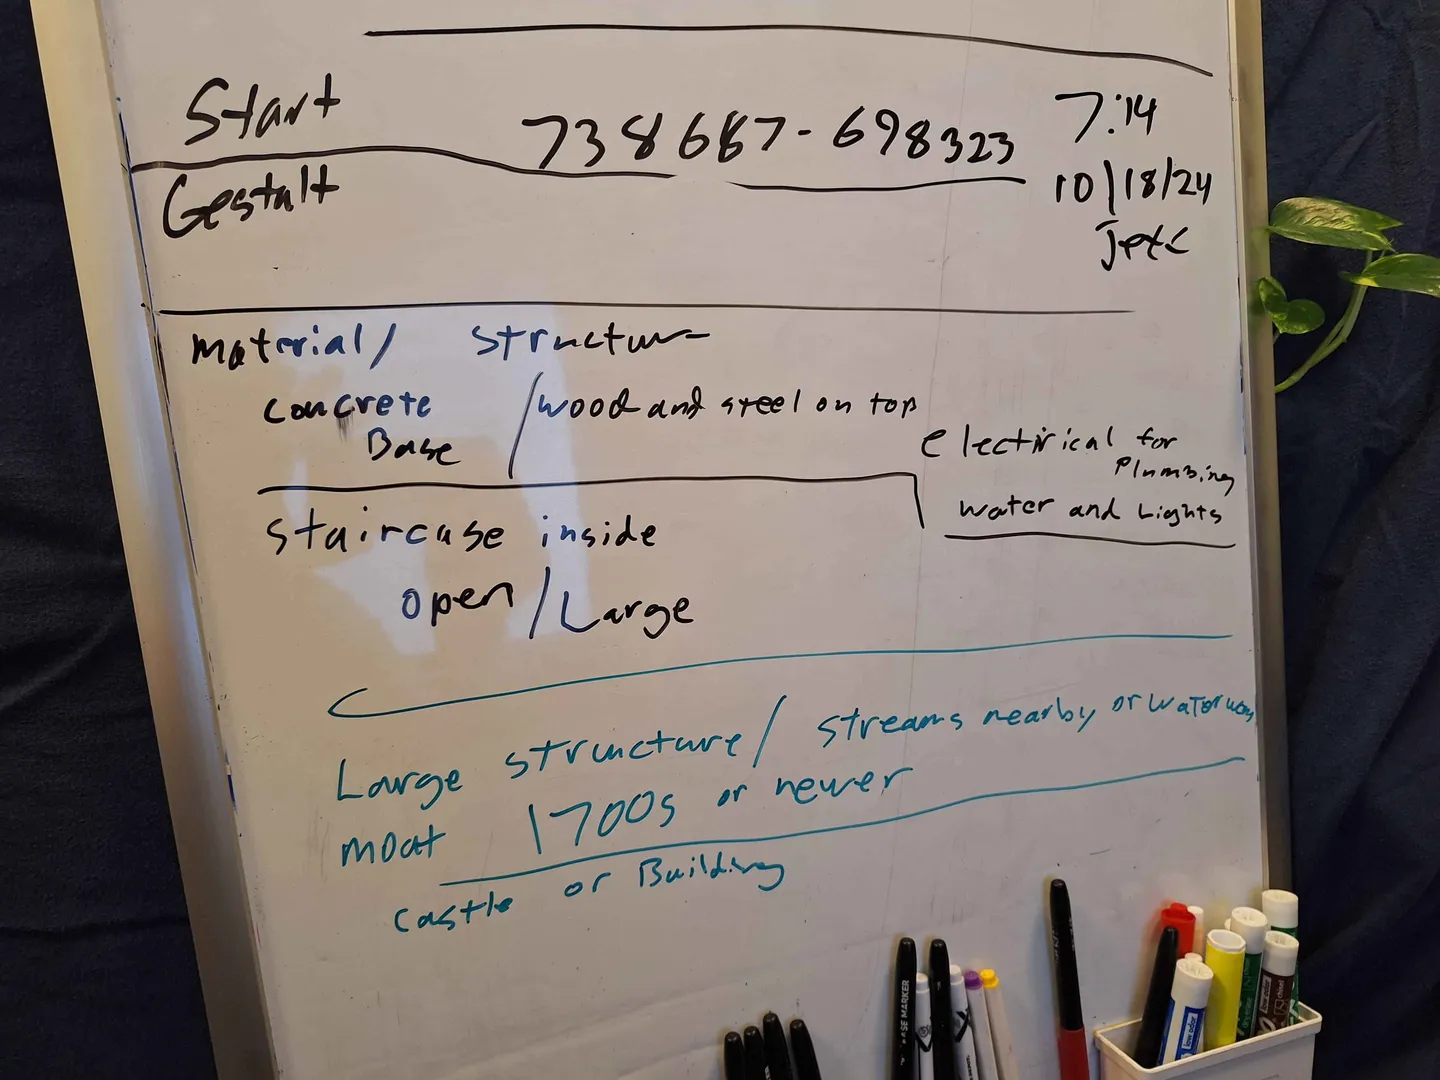 Start
738667-698323
7:14
10/18/24
Gestalt
Material/ structure
concrete / wood and steel on top
Base
electirical for
Plumbing
water and Lights
staircase inside
open / Large
Large structure / streams nearby or waterway
moat 1700s or newer
castle or Building